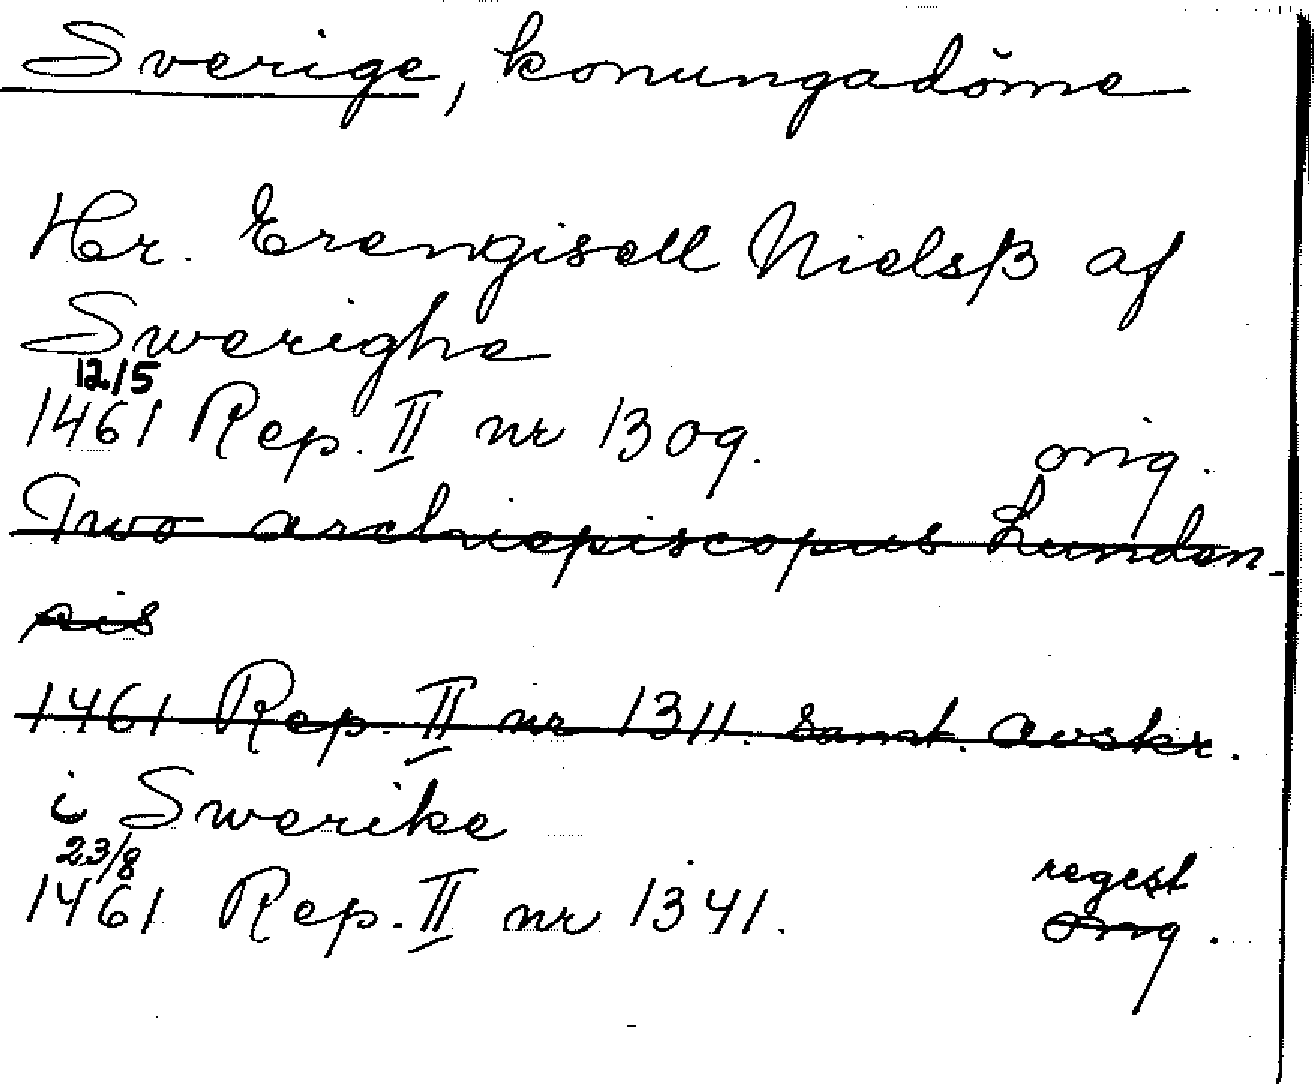 Sverige, konungadöme
Hr. Erengisell Nielsβ af
Swerighe
12/5
1461 Rep. II nr 1309. orig.
Tuo archiepiscopus Lunden-
sis
1461 Rep. II nr 1311. samt. avskr.
i Swerike
23/8 regest
1461 Rep. II nr 1341. orig.